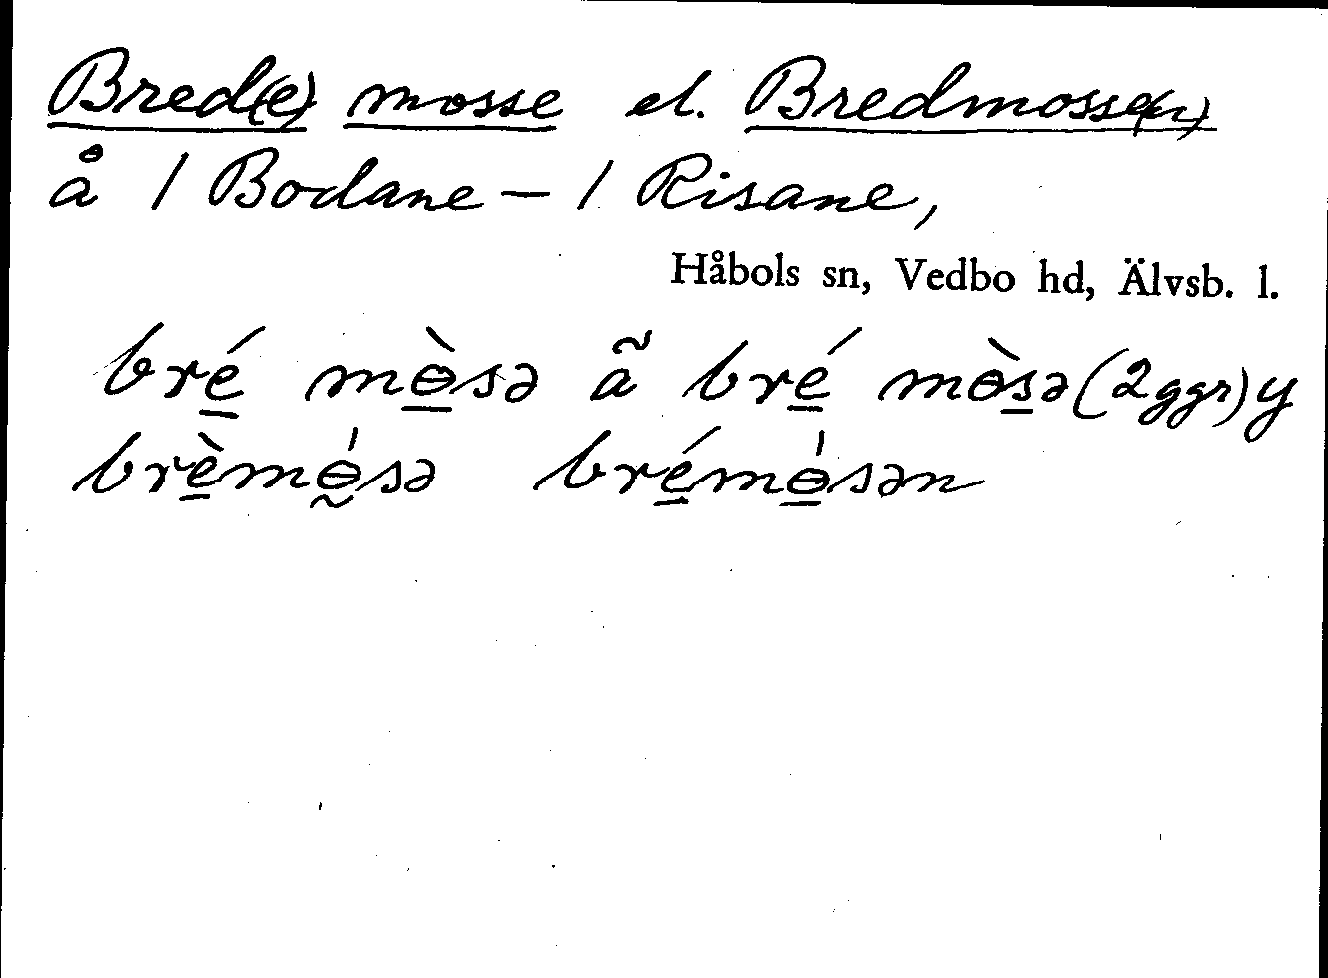 Bred(e) mosse el. Bredmosse(n)
å / Bodane – / Risane,
Håbols sn, Vedbo hd, Älvsb. l.
bré̱ mɵ̱̀sə ã bré̱ mɵ̀s̱ə (2ggr) y
brè̱mɵ̰́sə bré̱mɵ̱́sən